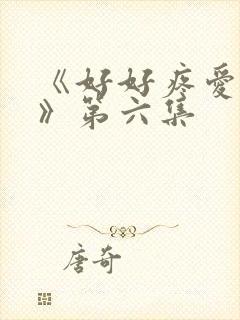 《好好疼爱
》第六集
唐奇